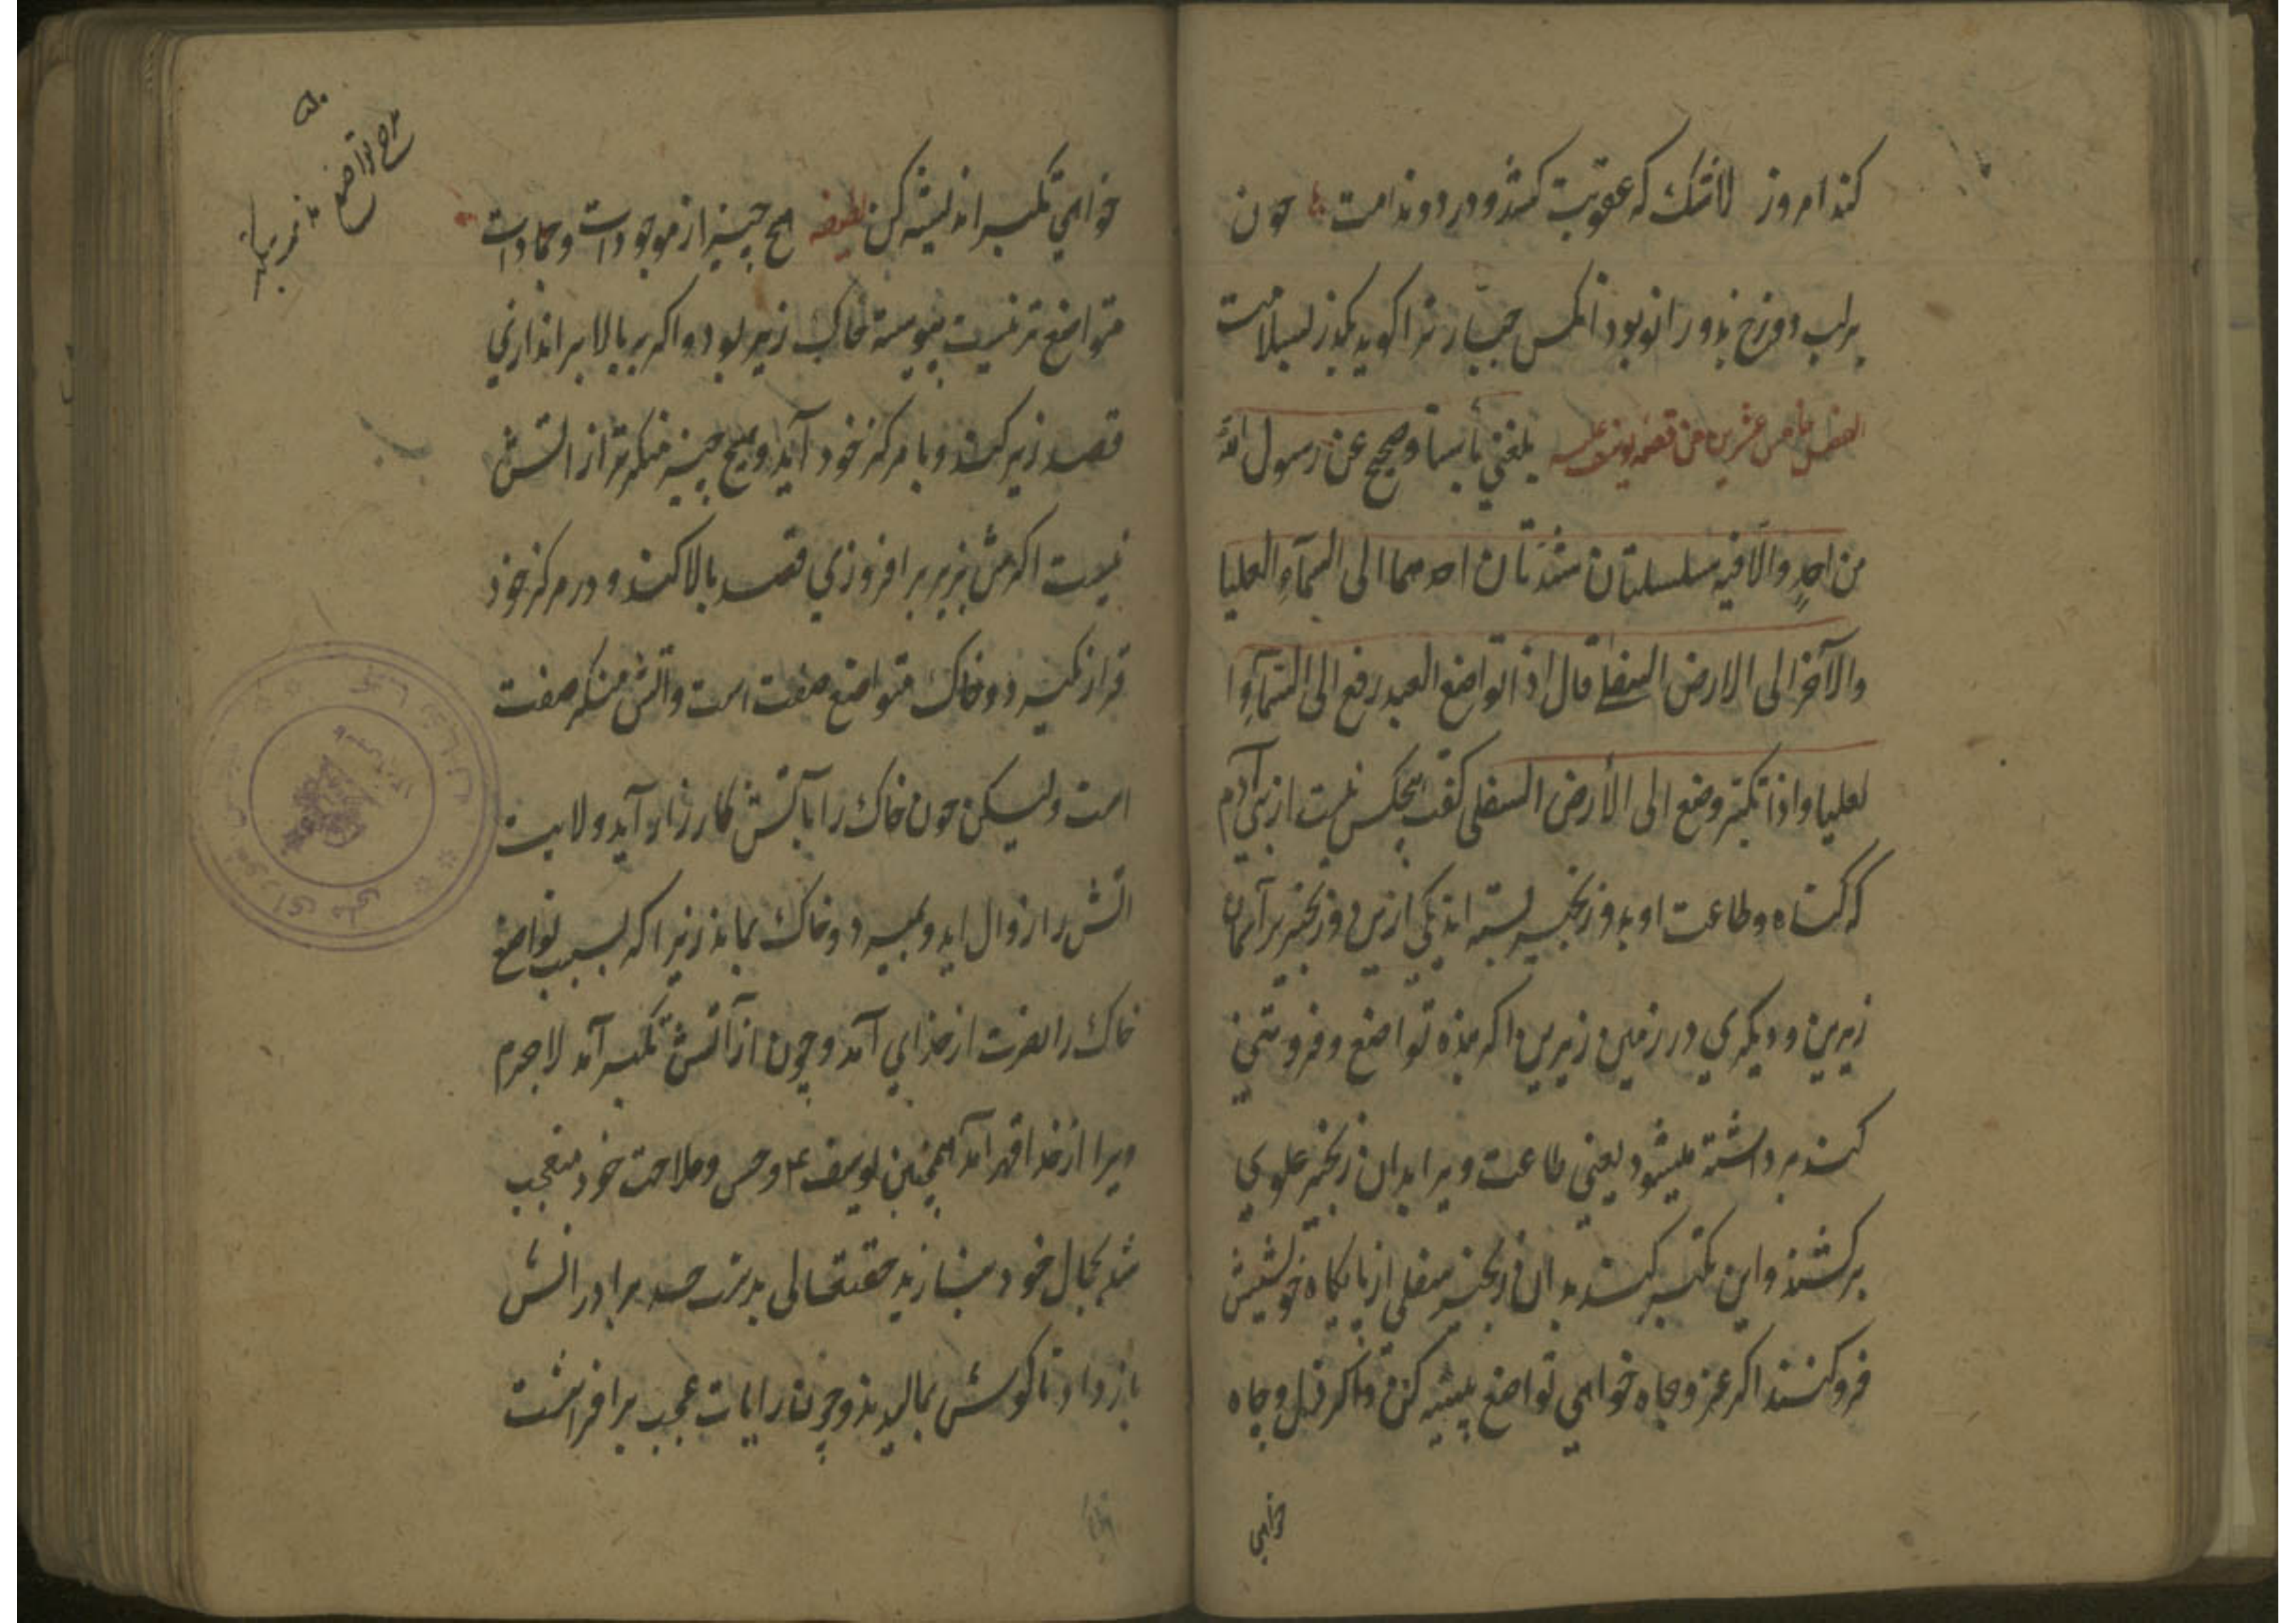 کند امروز لاشک که عقوبت کشد و درد و ندامت چون
برلب دوزخ بدو زانو بود انکس جبار ترا کوید بکذر بسلامت
الفصل خامس عشرین من قصه یوسف علیه بلغنی باسناد صحیح عن رسول الله
من احد والا فیه سلسلتان شدتان احدهما الی السمآء العلیا
والآخر الی الارض السفلی قال اذا تواضع العبد رفع الی السمآء ا
لعلیا واذا تکبّر وضع الی الأرض السفلی کفت هیچکس نیست از بنی آدم
که کناه و طاعت او بدو زنجیر بسته اند یکی ازین دو زنجیر بر آسمان
زیرین و دیکری در زمین زیرین اکر بنده تواضع و فروتنی
کند برداشته میشود یعنی طاعت ویرا بدان زنجیر علوی
برکشند و این تکبر کند بدان زنجیر سفلی از پایکاه خویشیش
فروکنند اکر عز و جاه خواهی تواضع پیشه کن و اکر ذل و چاه
خواهی
خواهی تکبر اندیشه کن لطیفه هیچ چیز از موجودات و جمادات
متواضع تر نیست پیوسته خاک زیر بود و اکر بر بالا براندازی
قصد زیر کند و با مرکز خود آید و هیچ چیز متکبرتر از اتش
نیست اکرش بزیر برافروزی قصد بالا کند و در مرکز خود
قرار نکیرد و خاک متواضع صفت است و آتش متکبر صفت
است ولیکن چون خاک را با آتش کارزار آید ولایت
اتش را زوال اید و بمیرد و خاک بماند زیرا که بسبب تواضع
خاک را نصرت از خدای آمد و چون از آتش تکبر آمد لاجرم
ویرا از خدا قهر آمد همچنین یوسف ع و حسن و ملاحت خود متعجب
شد بجمال خود بنازید حقتعالی بدست حسد برادرانش
باز داد تا کوش بمالیدند و چون رایات عجب برافراشت